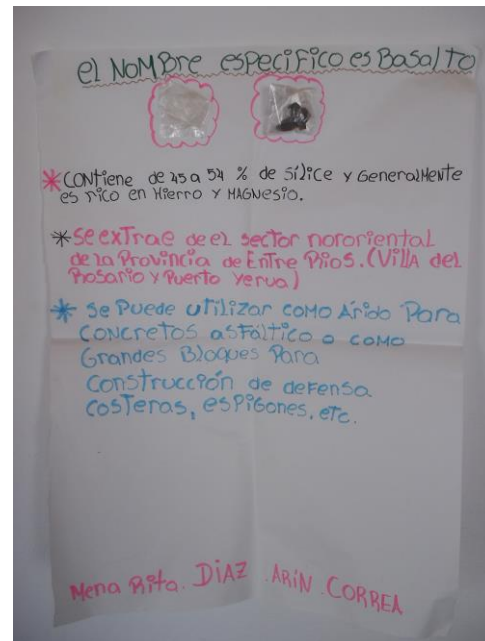 el NOMBre especifico es Basalto
*CONTiene de 45 a 54 % de sílice y GeneralMeNte
es rico en Hierro y MAGNesio.
*se exTrae de el sector nororiental
de la Provincia de Entre Rios. (Villa del
Rosario y Puerto Yerua)
* se Puede uTilizar como Árido Para
CONCretos asfáltico o como
Grandes Bloques Para
Construcción de defensa
cosTeras, espigones, etc.
Mena Rita. DIAZ .ARIN .CORREA